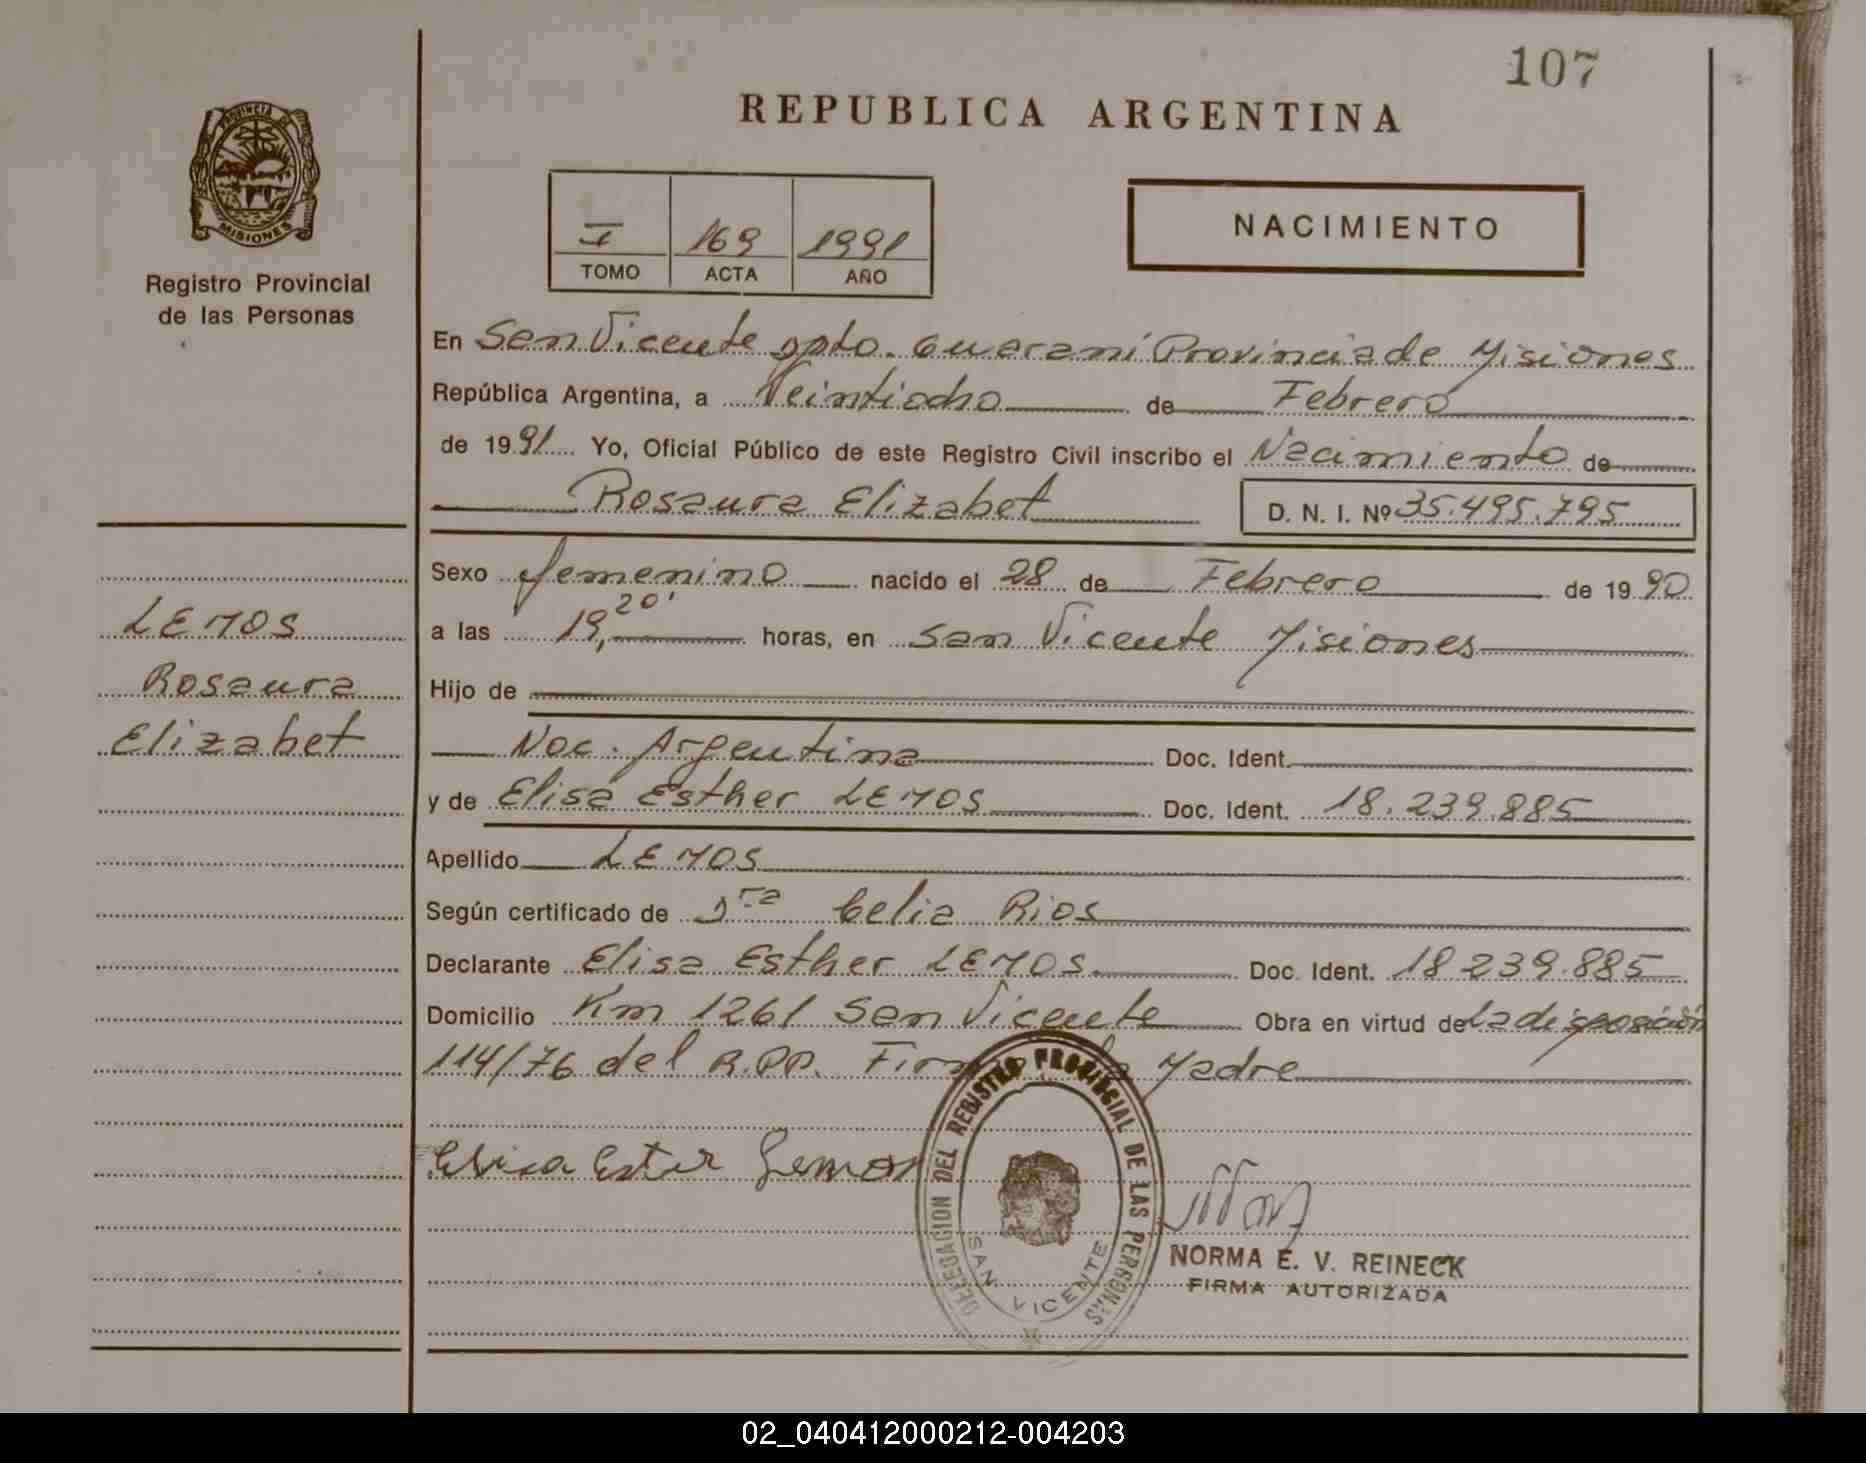 107
REPUBLICA ARGENTINA
PROVINCIA DE
MISIONES
Registro Provincial
de las Personas
I 169 1991
TOMO ACTA AÑO
NACIMIENTO
En San Vicente Dpto. Guaraní Provincia de Misiones
República Argentina, a Veintiocho de Febrero
de 1991 Yo, Oficial Público de este Registro Civil inscribo el Nacimiento de
Rosaura Elizabet D. N. I. Nº 35.495.795
LEMOS
Rosaura
Elizabet
Sexo femenino nacido el 28 de Febrero de 1990
a las 19,20' horas, en San Vicente Misiones
Hijo de
Nac. Argentina Doc. Ident.
y de Elisa Esther LEMOS Doc. Ident. 18.239.885
Apellido LEMOS
Según certificado de Dra Celia Rios
Declarante Elisa Esther LEMOS Doc. Ident. 18 239.885
Domicilio Km 1261 San Vicente Obra en virtud de la disposición
114/76 del R.PP. Firma la Madre
Elisa Ester Lemos
DELEGACION DEL REGISTRO PROVINCIAL DE LAS PERSONAS
SAN VICENTE
NORMA E. V. REINECK
FIRMA AUTORIZADA
02_040412000212-004203